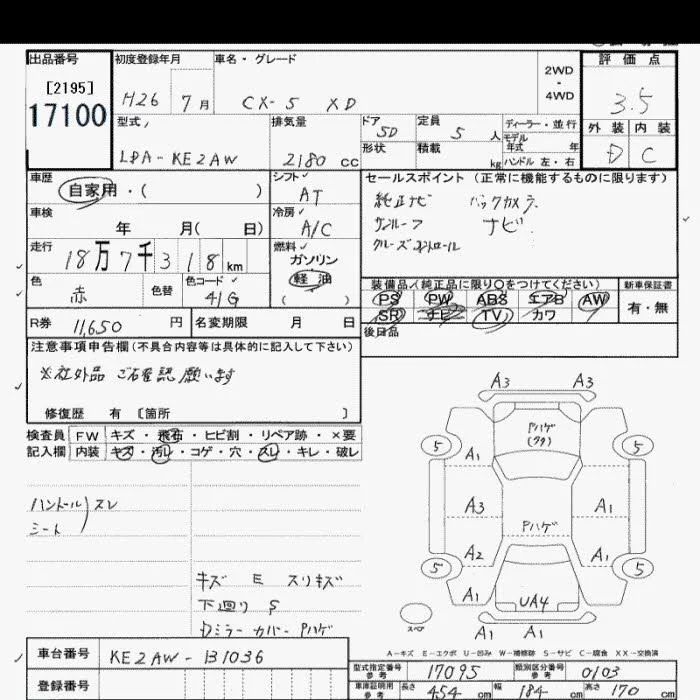 出品番号
[2195]
17100
初度登録年月
H26 7月
車名・グレード
CX-5 XD
2WD
・
4WD
評価点
3.5
外装 内装
D C
型式
LDA-KE2AW
排気量
2180 cc
ドア
5D
形状
定員
5 人
積載
kg
ディーラー・並行
モデル
年式 年
ハンドル 左・右
車歴
自家用・( )
シフト
AT
車検
年 月( 日)
冷房
A/C
走行
18万7千318 km
燃料
ガソリン
軽油
( )
色
赤
色替
色コード
41G
R券 11,650 円
名変期限 月 日
セールスポイント(正常に機能するものに限ります)
純正ナビ バックカメラ
サンルーフ ナビ
クルーズコントロール
装備品(純正品に限り○をつけてください)
PS PW ABS エアB AW
SR ナビ TV カワ
新車保証書
有・無
後日品
注意事項申告欄(不具合内容等は具体的に記入して下さい)
※社外品 ご確認願います
修復歴 有 〔箇所 〕
検査員
記入欄
FW キズ・飛石・ヒビ割・リペア跡・×要
内装 キズ・汚レ・コゲ・穴・スレ・キレ・破レ
ハンドル
シート
スレ
キズ E スリキズ
下廻り S
Dミラーカバー Pハゲ
A3 A3
Pハゲ
(クタ)
5 5
A1
A3 A1
Pハゲ
A2 A1
5 5
A1 UA4
スペア
A1 A1
A-キズ E-エクボ U-凹み W-補修跡 S-サビ C-腐食 XX-交換済
車台番号 KE2AW-131036
登録番号
型式指定番号
参考
17095
類別区分番号
参考
0103
車庫証明用
参考
長さ 454 cm 幅 184 cm 高さ 170 cm